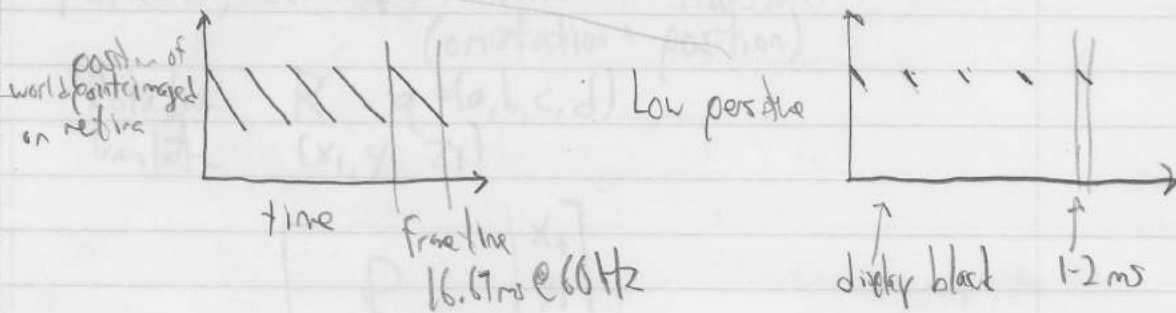 position of
world point imaged
on retina
time
frame time
16.67ms @60Hz
Low persistence
display black
1-2 ms